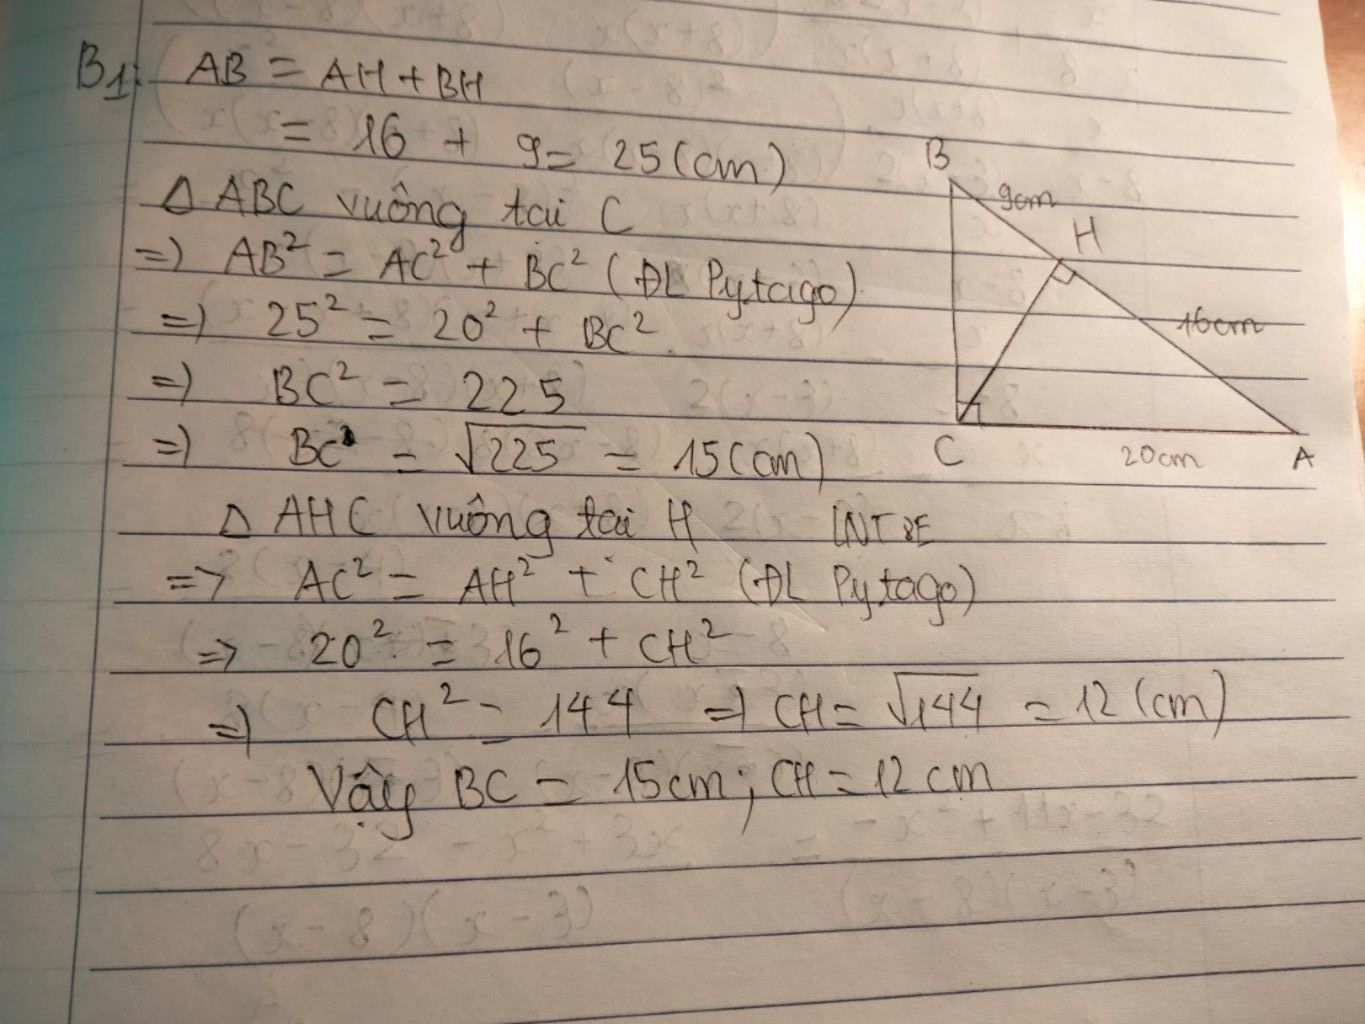 B1: AB = AH + BH
= 16 + 9 = 25 (cm)
Δ ABC vuông tại C
=> AB² = AC² + BC² (ĐL Pytago)
=> 25² = 20² + BC²
=> BC² = 225
=> BC = √225 = 15 (cm)
Δ AHC vuông tại H
=> AC² = AH² + CH² (ĐL Pytago)
=> 20² = 16² + CH²
=> CH² = 144 => CH = √144 = 12 (cm)
Vậy BC = 15cm; CH = 12 cm
B
9cm
H
16cm
C
20cm
A